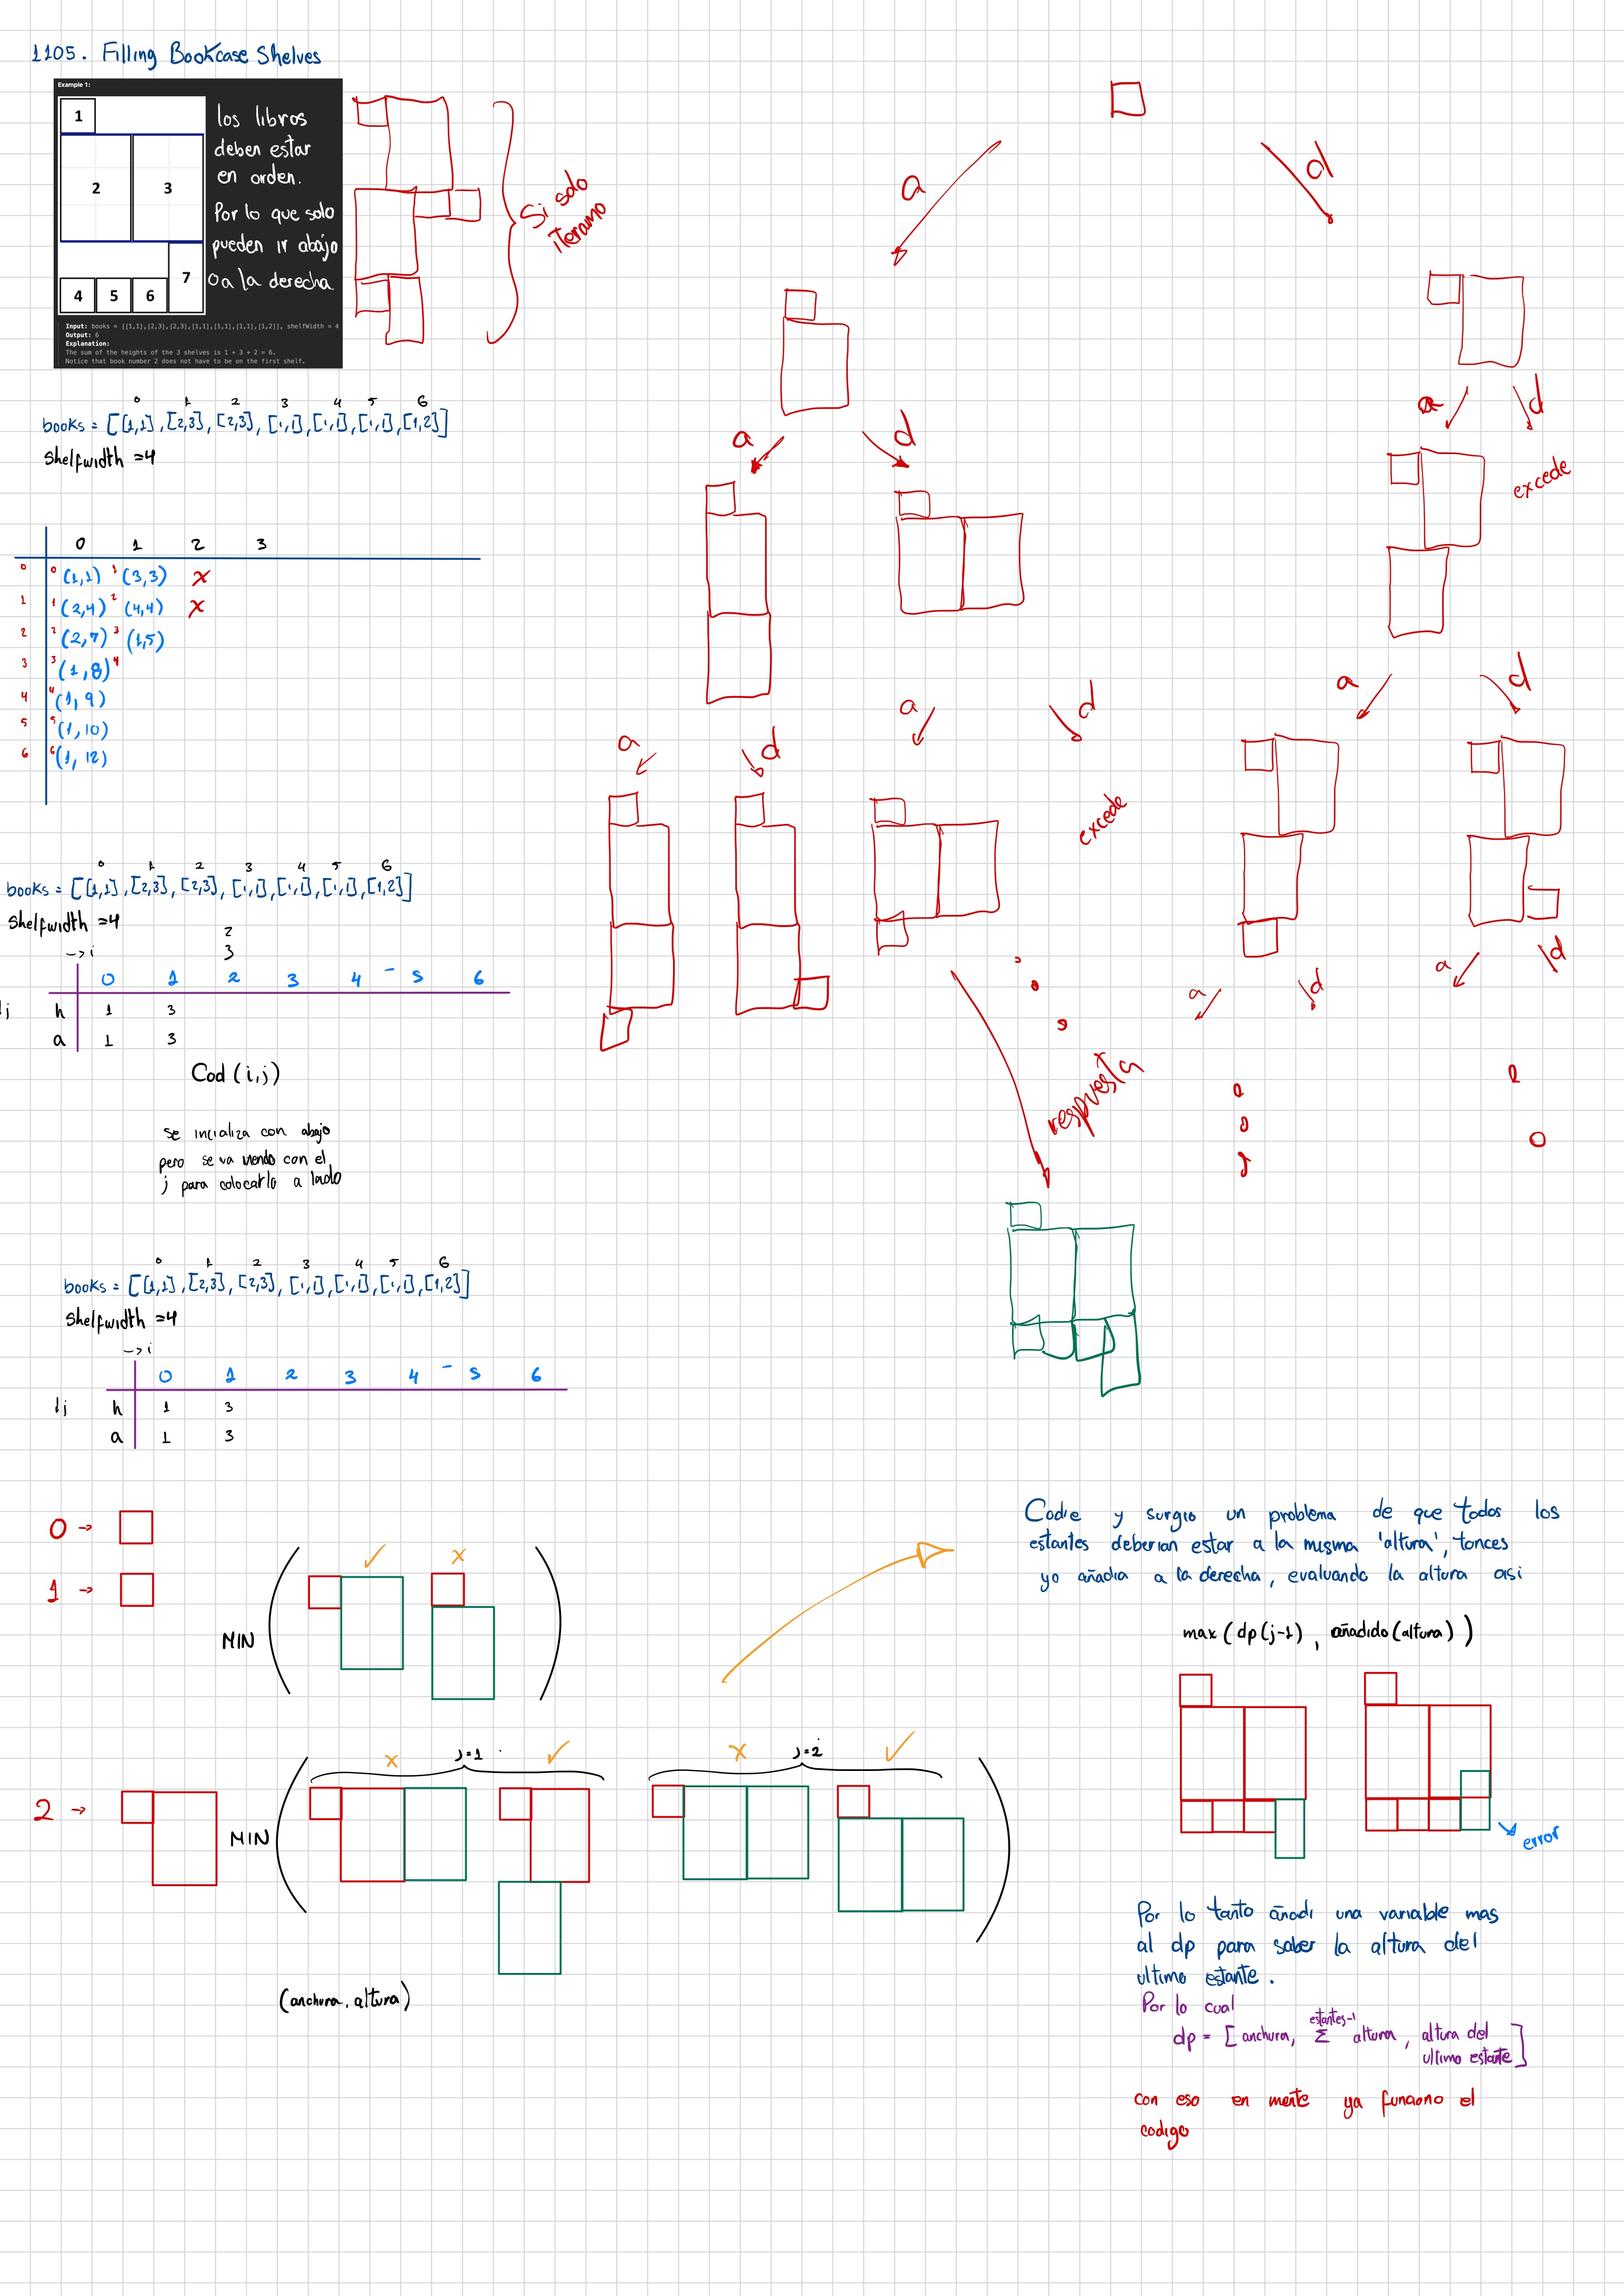 1105. Filling Bookcase Shelves
Example 1:
1
2 3
7
4 5 6
los libros
deben estar
en orden.
Por lo que solo
pueden ir abajo
o a la derecha.
Input: books = [[1,1],[2,3],[2,3],[1,1],[1,1],[1,1],[1,2]], shelfWidth = 4
Output: 6
Explanation:
The sum of the heights of the 3 shelves is 1 + 3 + 2 = 6.
Notice that book number 2 does not have to be on the first shelf.
Si solo
iteramo
a d
a d
a d
excede
a d
a d
a d
excede
a d
a d
respuesta
0 1 2 3 4 5 6
books = [[1,1],[2,3],[2,3],[1,1],[1,1],[1,1],[1,2]]
shelfwidth =4
0 1 2 3
0 0 (1,1) 1 (3,3) x
1 1 (2,4) 2 (4,4) x
2 2 (2,7) 3 (1,5)
3 3 (1,8) 4
4 4 (1,9)
5 5 (1,10)
6 6 (1,12)
0 1 2 3 4 5 6
books = [[1,1],[2,3],[2,3],[1,1],[1,1],[1,1],[1,2]]
shelfwidth =4
2
->i 3
0 1 2 3 4 - 5 6
j h 1 3
a 1 3
Cod (i,j)
se incializa con abajo
pero se va viendo con el
j para colocarlo a lado
0 1 2 3 4 5 6
books = [[1,1],[2,3],[2,3],[1,1],[1,1],[1,1],[1,2]]
shelfwidth =4
->i
0 1 2 3 4 - 5 6
↓j h 1 3
a 1 3
0 ->
1 -> MIN ( ✓ x )
2 -> MIN ( x j=1 ✓ x j=2 ✓ )
(anchura, altura)
Codie y surgio un problema de que todos los
estantes deberian estar a la misma 'altura', tonces
yo añadia a la derecha, evaluando la altura asi
max ( dp (j-1) , añadido (altura) )
error
Por lo tanto añadi una variable mas
al dp para saber la altura del
ultimo estante.
Por lo cual
estantes-1
dp = [ anchura, Σ altura , altura del
ultimo estante ]
con eso en mente ya funciono el
codigo